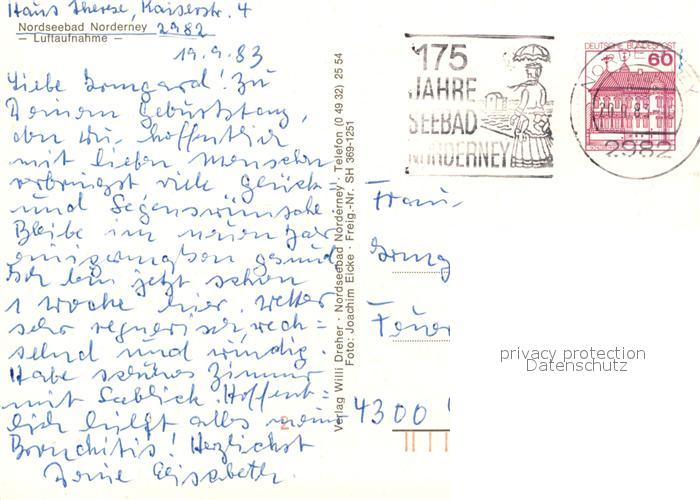 Haus Therese, Kaiserstr. 4
Nordseebad Norderney 2982
– Luftaufnahme –
19.9.83
Liebe Irmgard! Zu
Deinem Geburtstag,
den Du, hoffentlich
mit lieben Menschen
verbringst viele Glück-
und Segenswünsche
Bleibe im neuen Jahr
einigermaßen gesund
Ich bin jetzt schon
1 Woche hier. Wetter
sehr regnerisch, wech=
selnd und windig.
Habe schönes Zimmer
mit Seeblick. Hoffent=
lich hilft alles meiner
Bronchitis! Herzlichst
Deine Elisabeth.
Verlag Willi Dreher · Nordseebad Norderney · Telefon (0 49 32) 25 54
Foto: Joachim Eicke · Freig.-Nr. SH 369-1251
175
JAHRE
SEEBAD
NORDERNEY
DEUTSCHE BUNDESPOST
60
2982
Frau
Irmg
Feuer
4300
privacy protection
Datenschutz